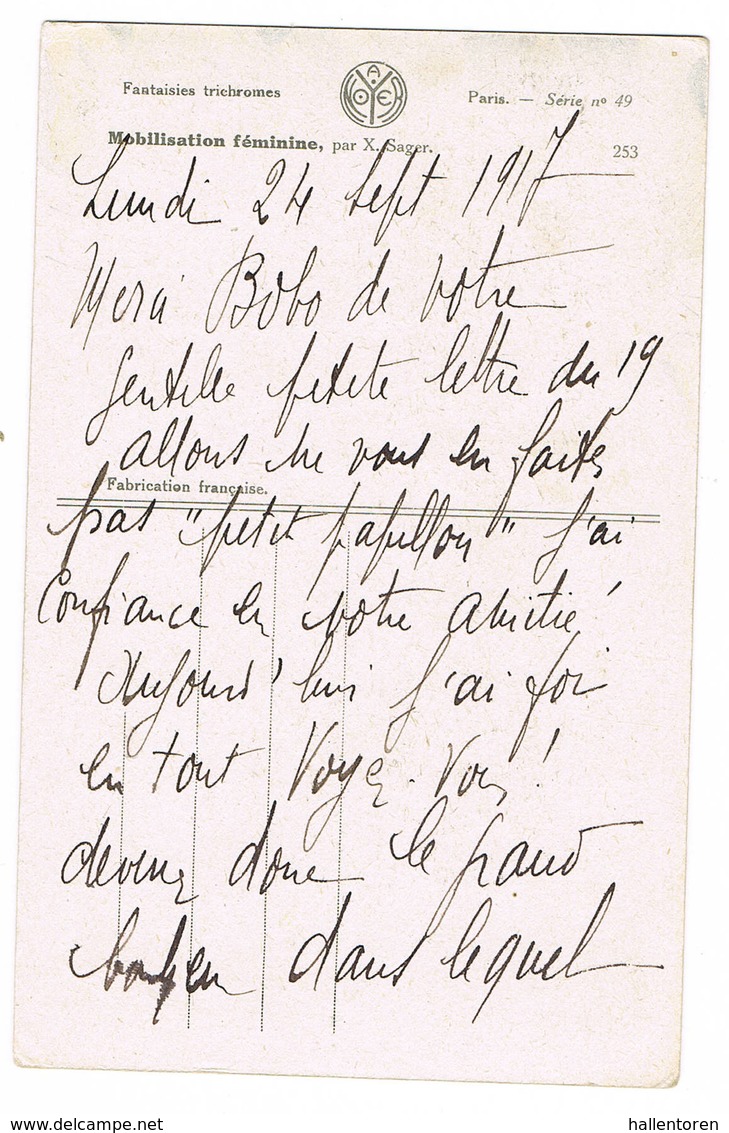 Fantaisies trichromes
NOYER
Paris. — Série nº 49
Mobilisation féminine, par X. Sager.
253
Lundi 24 Sept 1917
Merci Bobo de votre
gentille petite lettre du 19
allons ne vous en faites
Fabrication française.
pas "petit papillon" j'ai
Confiance en votre amitié!
Aujourd'hui j'ai foi
en tout Voyez-vous!
devenez donc le grand
dans lequel
hallentoren